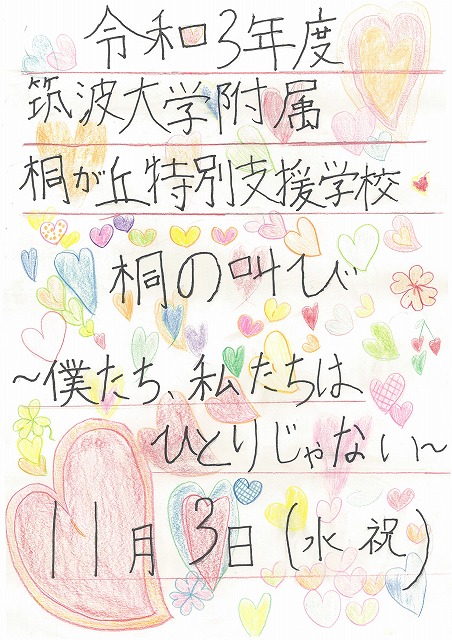 令和3年度
筑波大学附属
桐が丘特別支援学校
桐の叫び
～僕たち、私たちは
ひとりじゃない～
11月3日(水祝)